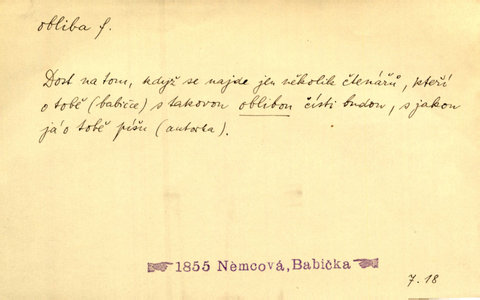 obliba f.
Dost na tom, když se najde jen několik čtenářů, kteří
o tobě (babičce) s takovou oblibou čísti budou, s jakou
já o tobě píšu (autorka).
1855 Němcová, Babička
7. 18